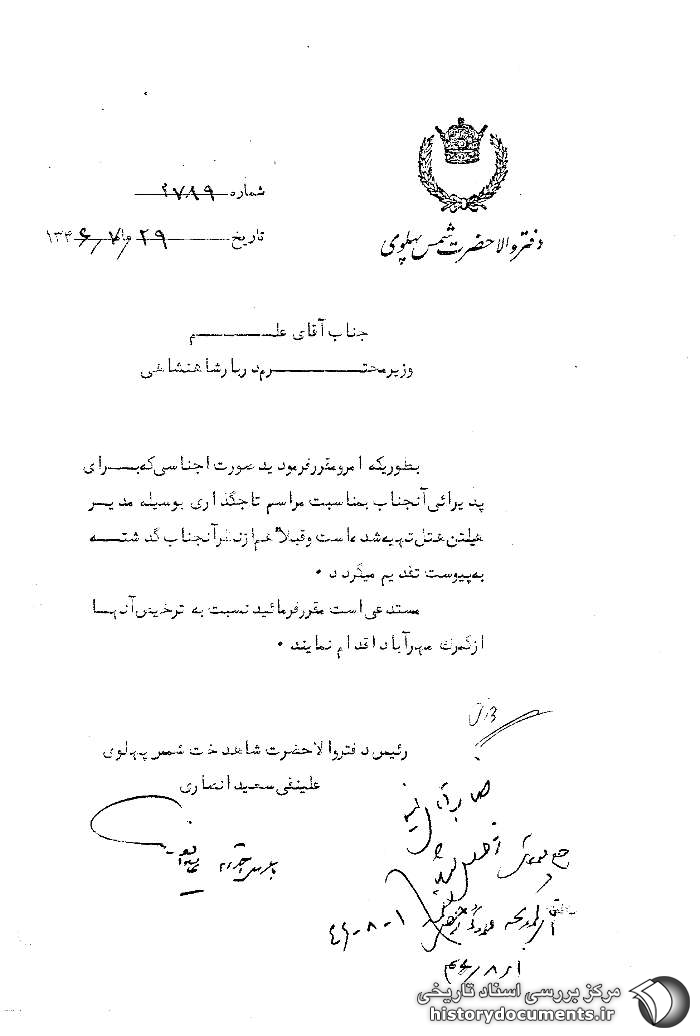 دفتر والاحضرت شمس پهلوی
شماره ۲۷۸۹
تاریخ ۲۹ ماه ۷ ۱۳۴۶
جناب آقای علــم
وزیر محتــرم دربار شاهنشاهی
بطوریکه امر و مقرر فرمودید صورت اجناسی که بــرای
پذیرائی آنجناب بمناسبت مراسم تاجگذاری بوسیله مدیــر
هیلتن هتل تهیه شده است و قبلاً هم از نظر آنجناب گذشتــه
به پیوست تقدیم میگردد .
مستدعی است مقرر فرمائید نسبت به ترخیص آنهــا
از گمرک مهرآباد اقدام نمایند .
رئیس دفتر والاحضرت شاهدخت شمس پهلوی
علینقی سعید انصاری
۱-۸-۴۶
۱/۸/۴۶
مرکز بررسی اسناد تاریخی
historydocuments.ir